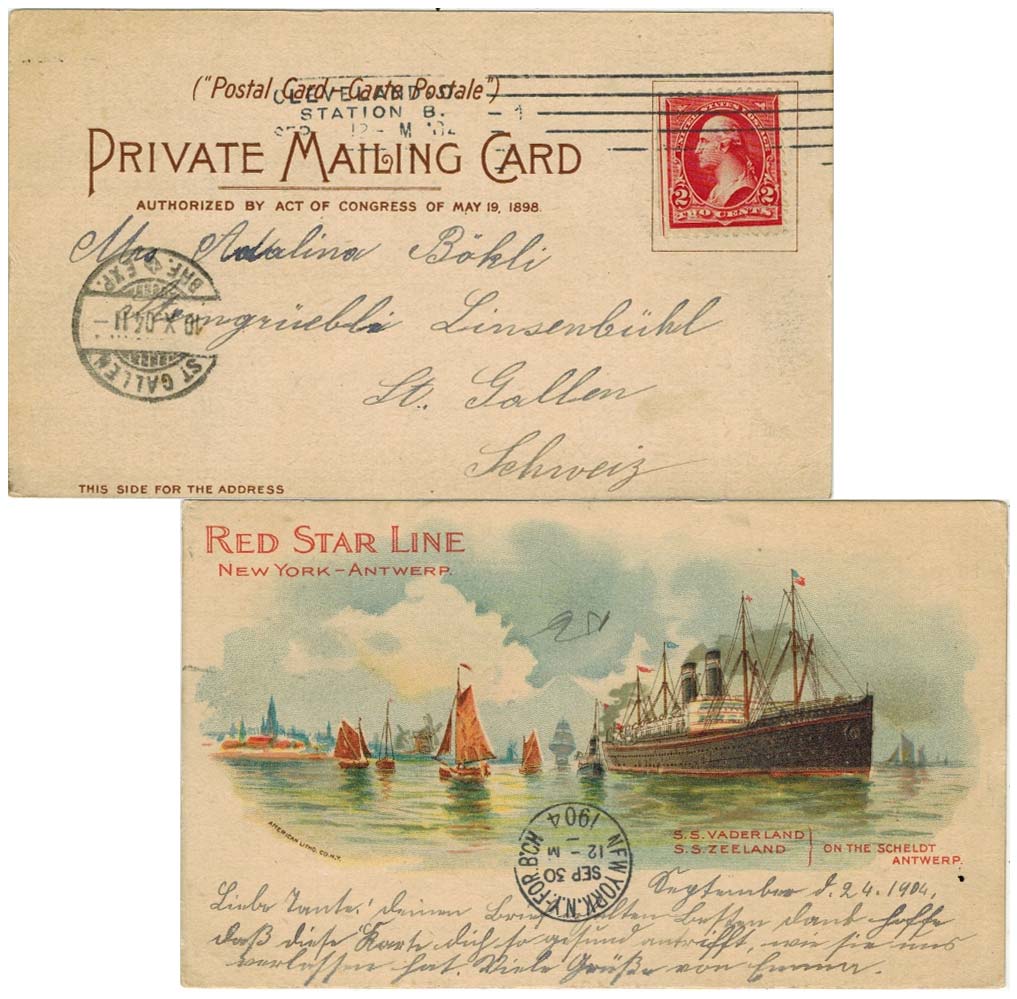 ("Postal Card – Carte Postale")
CLEVELAND. O.
STATION B.
12 - M
1
PRIVATE MAILING CARD
AUTHORIZED BY ACT OF CONGRESS OF MAY 19, 1898.
UNITED STATES POSTAGE
2 2
TWO CENTS
Mrs Adalina Bökli
Linsenbühl
St. Gallen
Schweiz
BRF. EXP.
10 X 04 11 –
ST GALLEN
THIS SIDE FOR THE ADDRESS
RED STAR LINE
NEW YORK – ANTWERP.
AMERICAN LITHO. CO. N.Y.
S.S. VADERLAND
S.S. ZEELAND
ON THE SCHELDT
ANTWERP.
NEW YORK, N.Y.-FOR. BCH
SEP 30
12 - M
1904
September d. 24. 1904,
Liebe Tante! deinen Brief erhalten Besten dank hoffe
daß diese Karte dich so gesund antrifft, wie sie uns
verlassen hat. Viele Grüße von Emma.